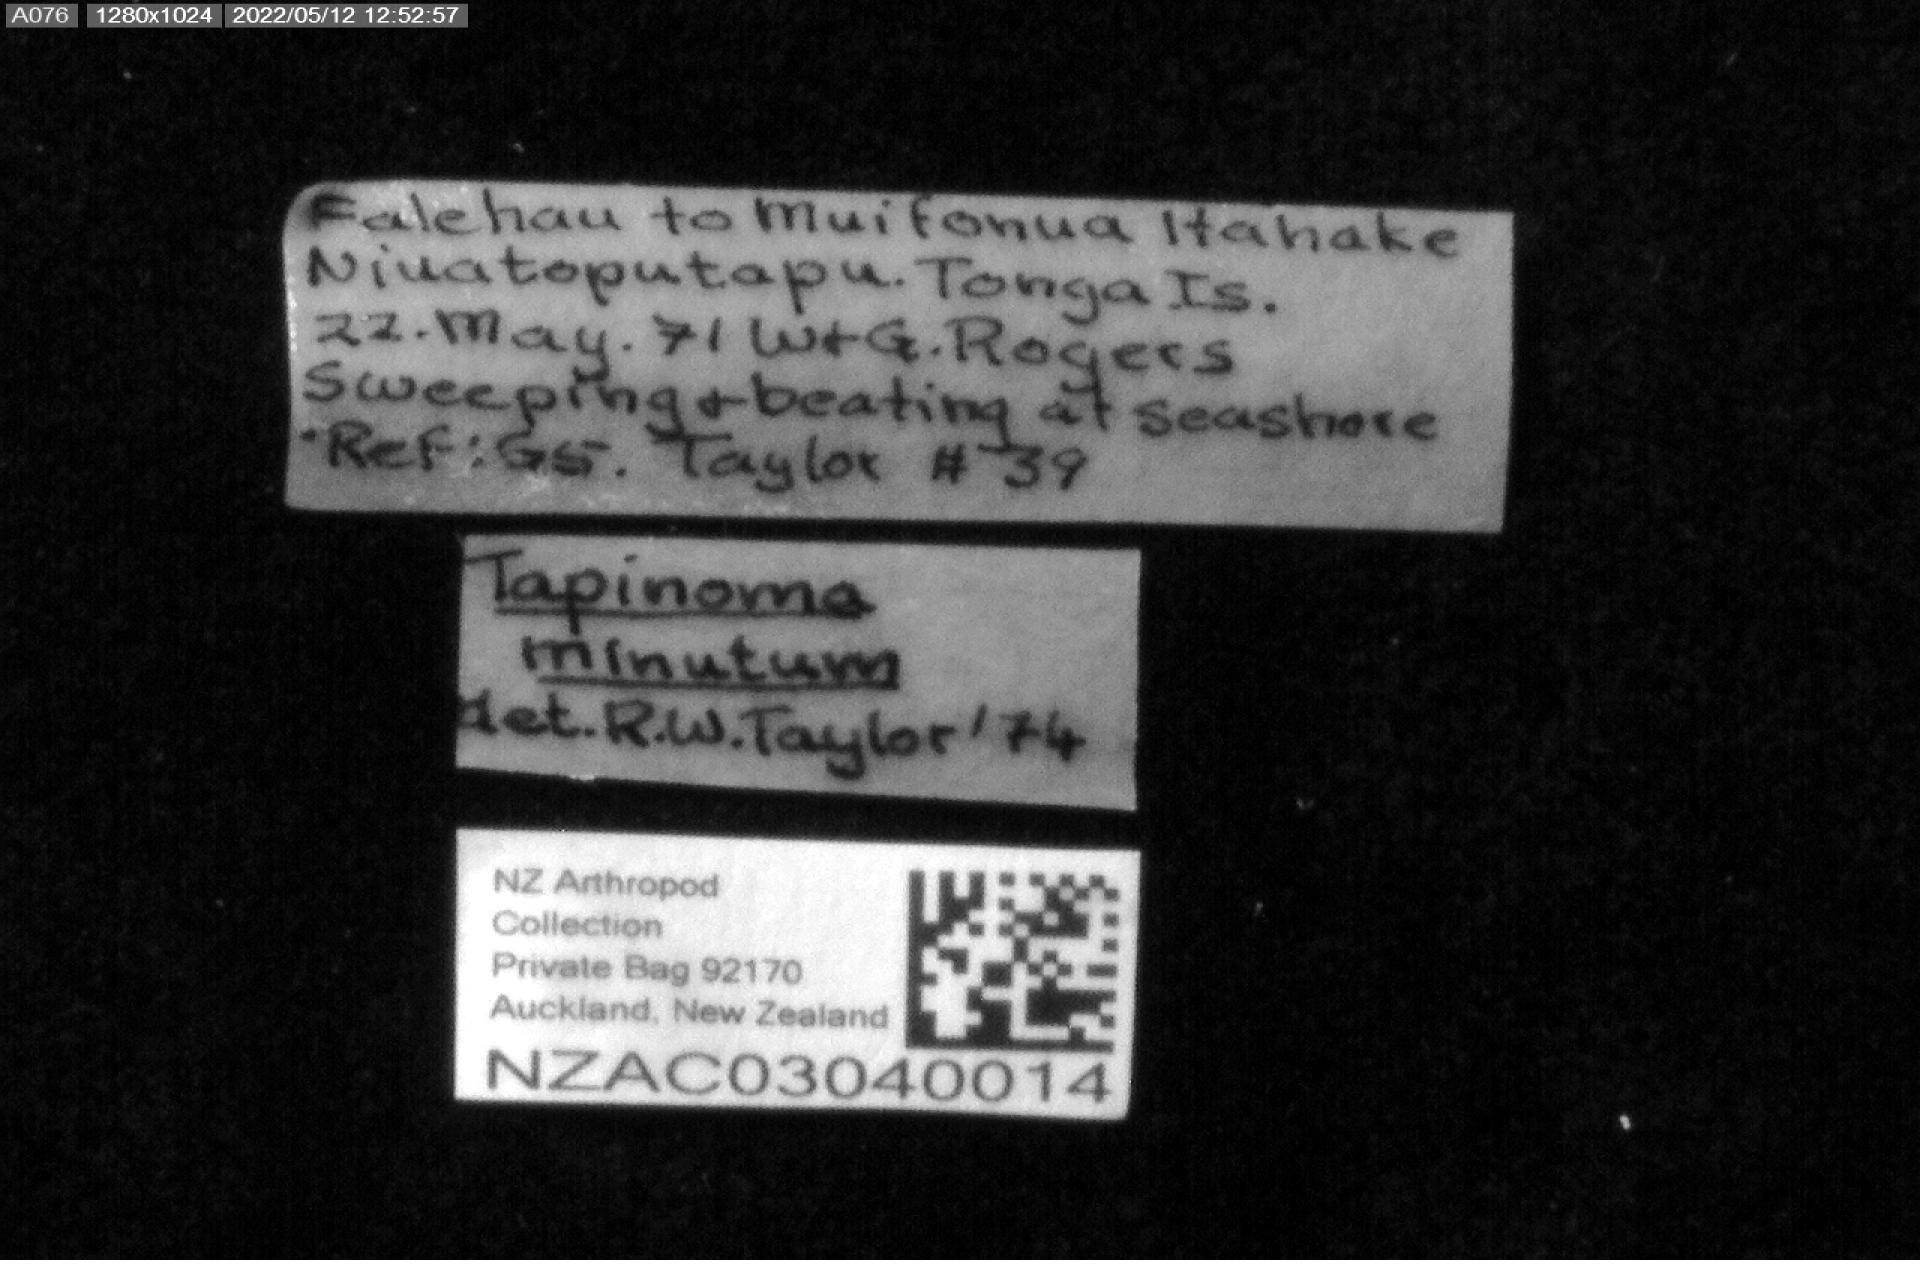 A076 1280x1024 2022/05/12 12:52:57
Falehau to Muifonua Itahake
Niuatoputapu. Tonga Is.
22. May. 71 W+G. Rogers
Sweeping + beating at seashore
Ref: G5. Taylor # 39
Tapinoma
minutum
det. R.W. Taylor '74
NZ Arthropod
Collection
Private Bag 92170
Auckland, New Zealand
NZAC03040014